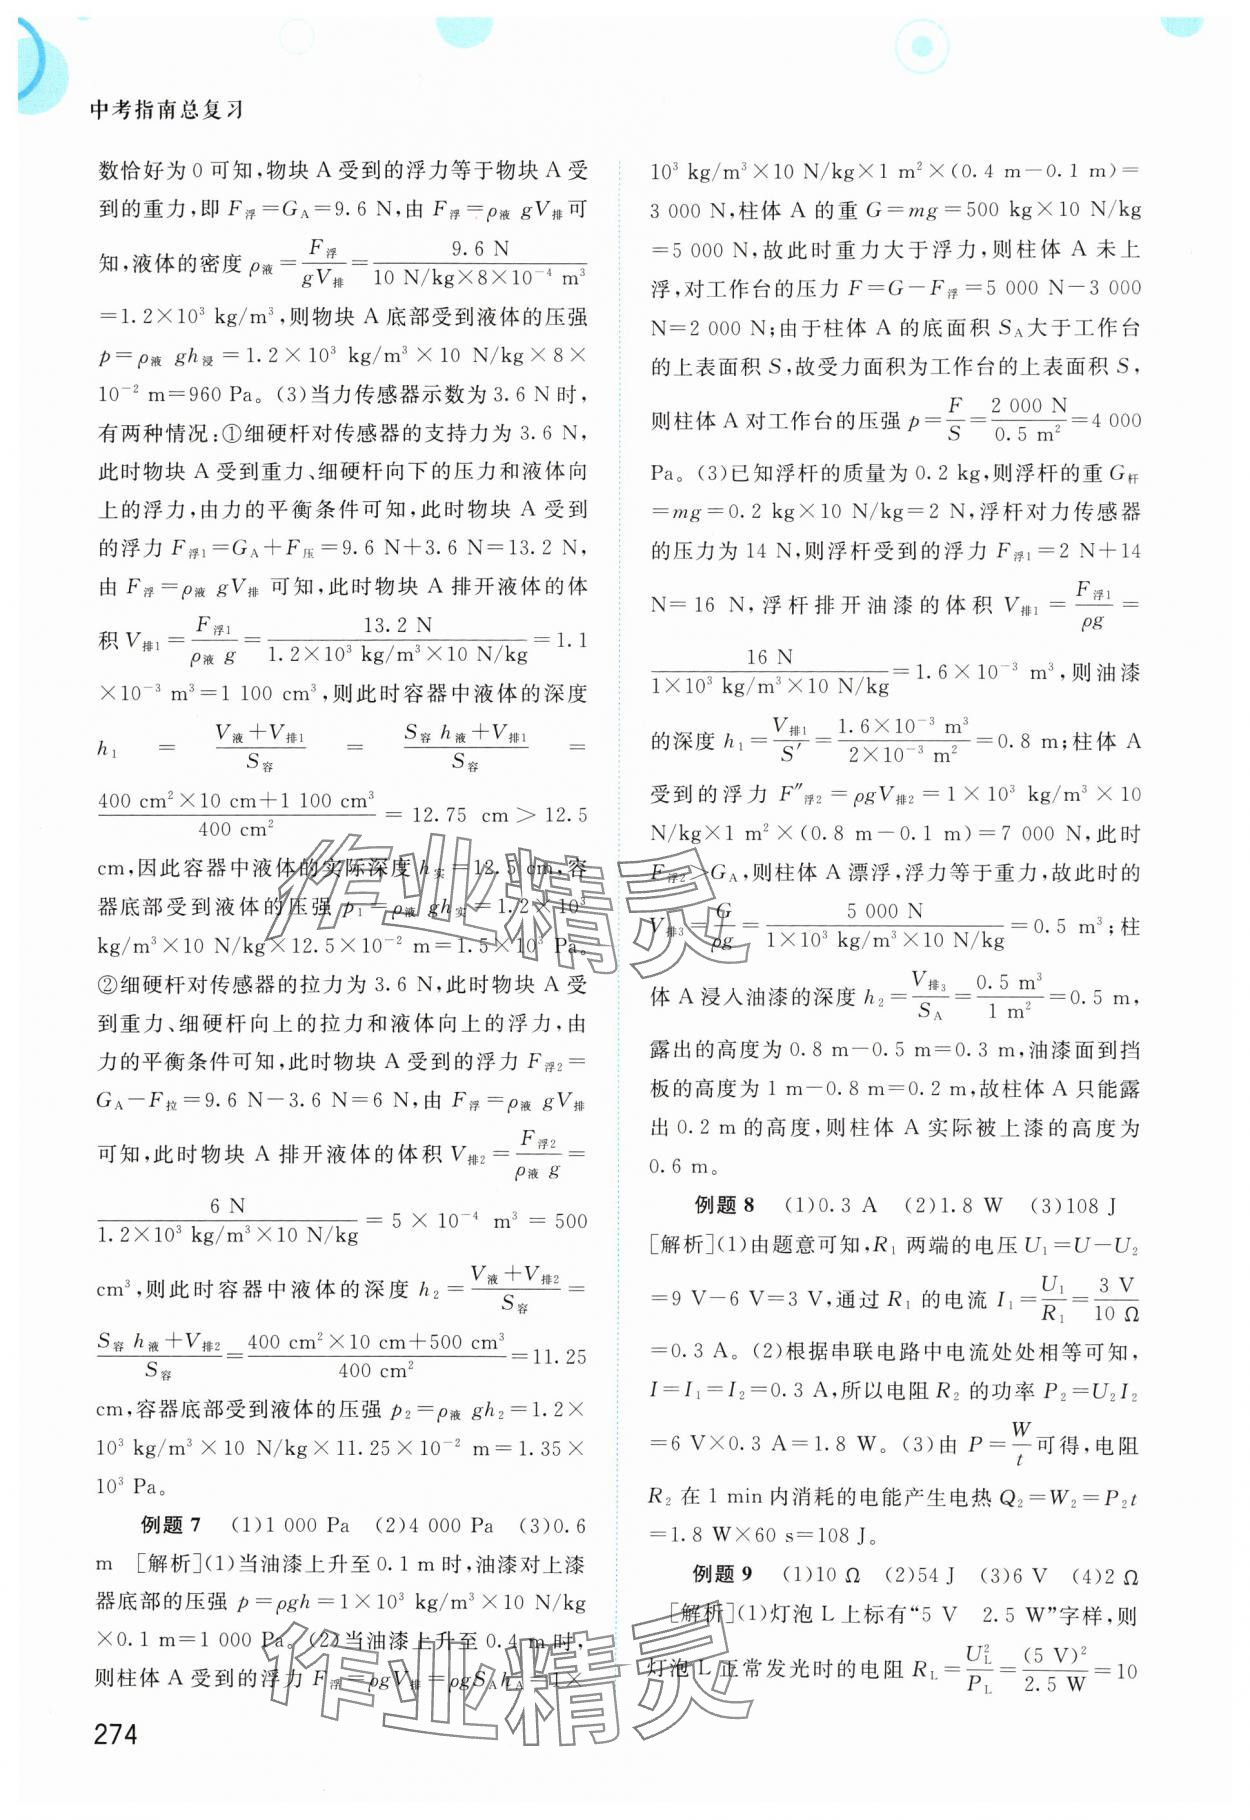 中考指南总复习
数恰好为0可知,物块A受到的浮力等于物块A受
到的重力,即F浮=G_A=9.6 N,由F浮=ρ液 gV排可
知,液体的密度ρ液=F浮/gV排=9.6 N/(10 N/kg×8×10⁻⁴ m³)
=1.2×10³ kg/m³,则物块A底部受到液体的压强
p=ρ液 gh浸=1.2×10³ kg/m³×10 N/kg×8×
10⁻² m=960 Pa。(3)当力传感器示数为3.6 N时,
有两种情况:①细硬杆对传感器的支持力为3.6 N,
此时物块A受到重力、细硬杆向下的压力和液体向
上的浮力,由力的平衡条件可知,此时物块A受到
的浮力F浮1=G_A+F压=9.6 N+3.6 N=13.2 N,
由F浮=ρ液 gV排 可知,此时物块A排开液体的体
积V排1=F浮1/ρ液 g=13.2 N/(1.2×10³ kg/m³×10 N/kg)=1.1
×10⁻³ m³=1 100 cm³,则此时容器中液体的深度
h₁ = (V液+V排1)/S容 = (S容 h液+V排1)/S容 =
(400 cm²×10 cm+1 100 cm³)/400 cm²=12.75 cm>12.5
cm,因此容器中液体的实际深度h实=12.5 cm,容
器底部受到液体的压强p₁=ρ液 gh实=1.2×10³
kg/m³×10 N/kg×12.5×10⁻² m=1.5×10³ Pa。
②细硬杆对传感器的拉力为3.6 N,此时物块A受
到重力、细硬杆向上的拉力和液体向上的浮力,由
力的平衡条件可知,此时物块A受到的浮力F浮2=
G_A-F拉=9.6 N-3.6 N=6 N,由F浮=ρ液 gV排
可知,此时物块A排开液体的体积V排2=F浮2/ρ液 g=
6 N/(1.2×10³ kg/m³×10 N/kg)=5×10⁻⁴ m³=500
cm³,则此时容器中液体的深度h₂=(V液+V排2)/S容=
(S容 h液+V排2)/S容=(400 cm²×10 cm+500 cm³)/400 cm²=11.25
cm,容器底部受到液体的压强p₂=ρ液 gh₂=1.2×
10³ kg/m³×10 N/kg×11.25×10⁻² m=1.35×
10³ Pa。
例题7 (1)1 000 Pa (2)4 000 Pa (3)0.6
m [解析](1)当油漆上升至0.1 m时,油漆对上漆
器底部的压强p=ρgh=1×10³ kg/m³×10 N/kg
×0.1 m=1 000 Pa。(2)当油漆上升至0.4 m时,
则柱体A受到的浮力F浮=ρgV排=ρgS_A h_A=1×
10³ kg/m³×10 N/kg×1 m²×(0.4 m-0.1 m)=
3 000 N,柱体A的重G=mg=500 kg×10 N/kg
=5 000 N,故此时重力大于浮力,则柱体A未上
浮,对工作台的压力F=G-F浮=5 000 N-3 000
N=2 000 N;由于柱体A的底面积S_A大于工作台
的上表面积S,故受力面积为工作台的上表面积S,
则柱体A对工作台的压强p=F/S=2 000 N/0.5 m²=4 000
Pa。(3)已知浮杆的质量为0.2 kg,则浮杆的重G杆
=mg=0.2 kg×10 N/kg=2 N,浮杆对力传感器
的压力为14 N,则浮杆受到的浮力F浮1=2 N+14
N=16 N,浮杆排开油漆的体积V排1=F浮1/ρg=
16 N/(1×10³ kg/m³×10 N/kg)=1.6×10⁻³ m³,则油漆
的深度h₁=V排1/S′=1.6×10⁻³ m³/2×10⁻³ m²=0.8 m;柱体A
受到的浮力F″浮2=ρgV排2=1×10³ kg/m³×10
N/kg×1 m²×(0.8 m-0.1 m)=7 000 N,此时
F浮2>G_A,则柱体A漂浮,浮力等于重力,故此时的
V排3=G/ρg=5 000 N/(1×10³ kg/m³×10 N/kg)=0.5 m³;柱
体A浸入油漆的深度h₂=V排3/S_A=0.5 m³/1 m²=0.5 m,
露出的高度为0.8 m-0.5 m=0.3 m,油漆面到挡
板的高度为1 m-0.8 m=0.2 m,故柱体A只能露
出0.2 m的高度,则柱体A实际被上漆的高度为
0.6 m。
例题8 (1)0.3 A (2)1.8 W (3)108 J
[解析](1)由题意可知,R₁两端的电压U₁=U-U₂
=9 V-6 V=3 V,通过R₁的电流I₁=U₁/R₁=3 V/10 Ω
=0.3 A。(2)根据串联电路中电流处处相等可知,
I=I₁=I₂=0.3 A,所以电阻R₂的功率P₂=U₂I₂
=6 V×0.3 A=1.8 W。(3)由P=W/t可得,电阻
R₂在1 min内消耗的电能产生电热Q₂=W₂=P₂t
=1.8 W×60 s=108 J。
例题9 (1)10 Ω (2)54 J (3)6 V (4)2 Ω
[解析](1)灯泡L上标有“5 V 2.5 W”字样,则
灯泡L正常发光时的电阻R_L=U_L²/P_L=(5 V)²/2.5 W=10
274
作业精灵
作业精灵